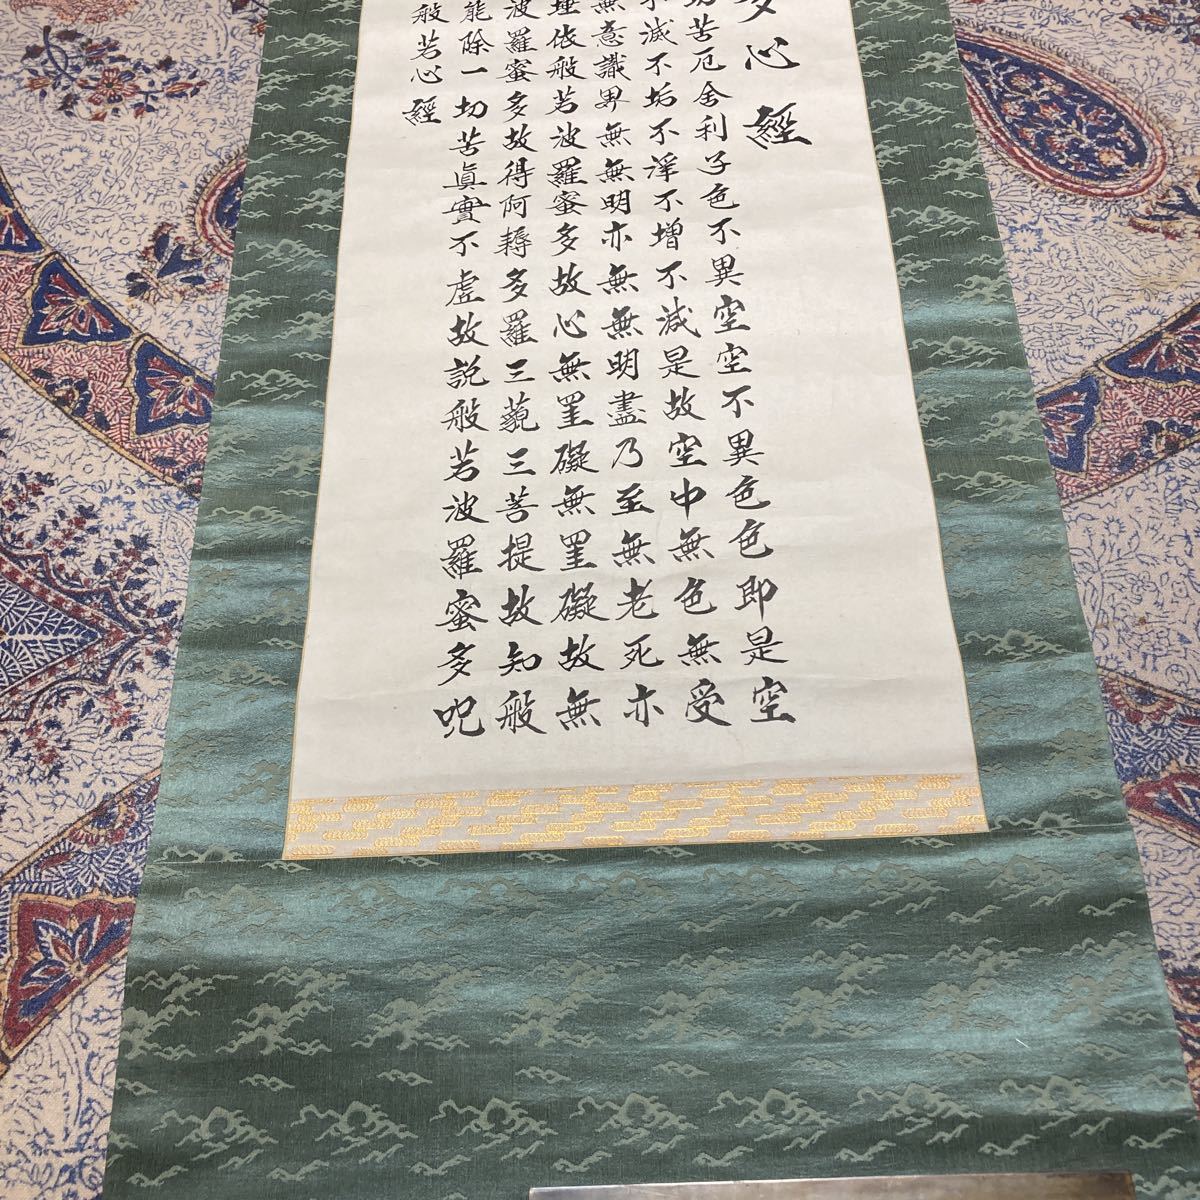 多心經
切苦厄舍利子色不異空空不異色色即是空
不滅不垢不淨不增不減是故空中無色無受
無意識界無無明亦無無明盡乃至無老死亦
埵依般若波羅蜜多故心無罣礙無罣礙故無
波羅蜜多故得阿耨多羅三藐三菩提故知般
能除一切苦眞實不虛故説般若波羅蜜多呪
般若心經